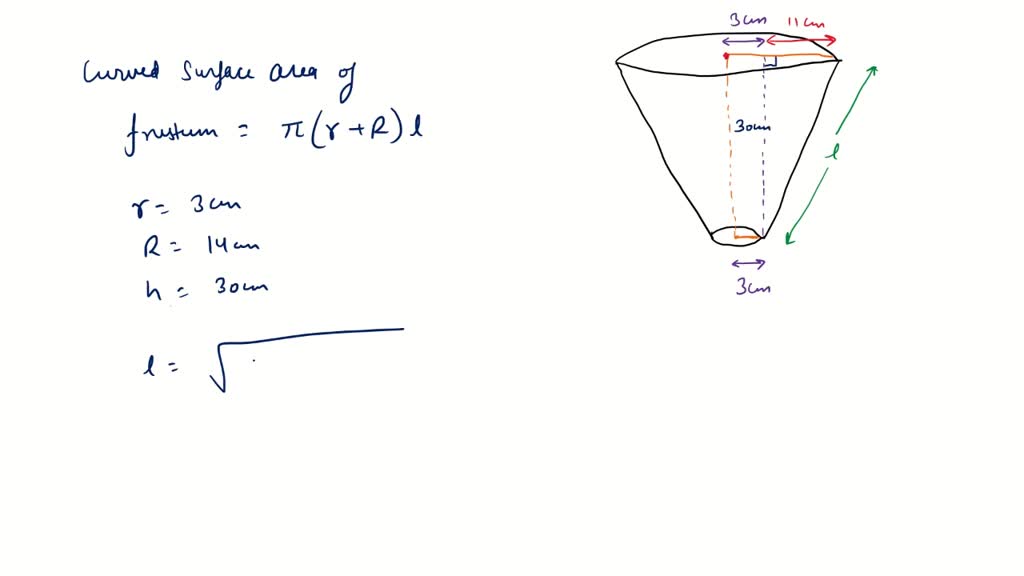 Curved Surface area of
frustum = π(r+R)l
r = 3cm
R = 14cm
h = 30cm
l = √
3cm 11cm
30cm
l
3cm